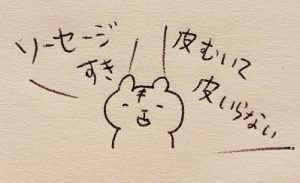 ソーセージ
すき
皮むいて
皮いらない